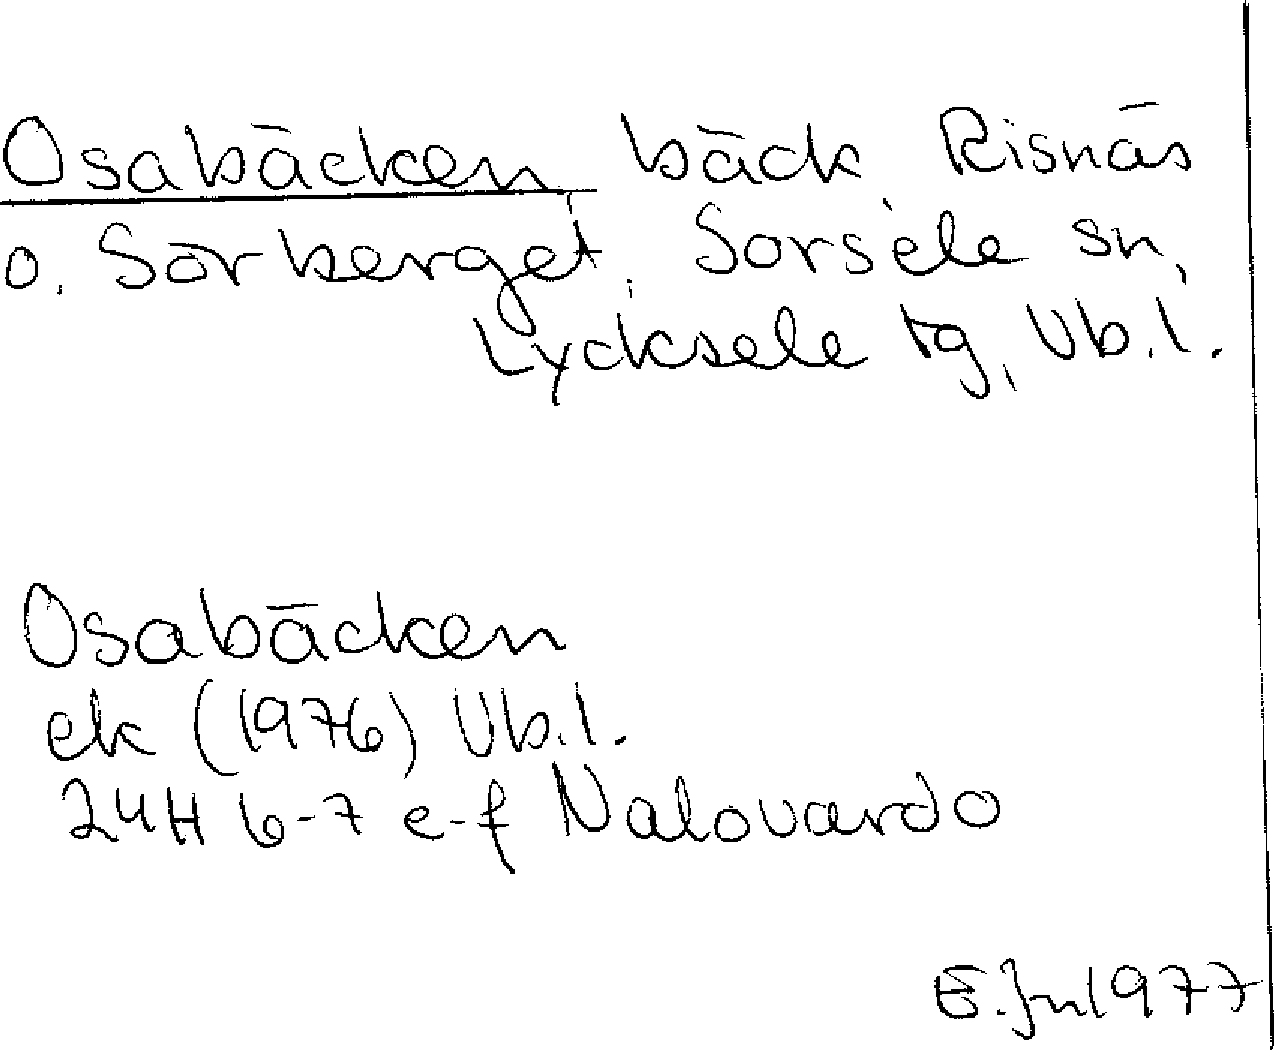 Osabäcken bäck, Risnäs
o. Sörberget, Sorsele sn,
Lycksele tg, Vb.l.
Osabäcken
ek (1976) Vb.l.
24H 6-7 e-f Nalovardo
E.Jn 1977